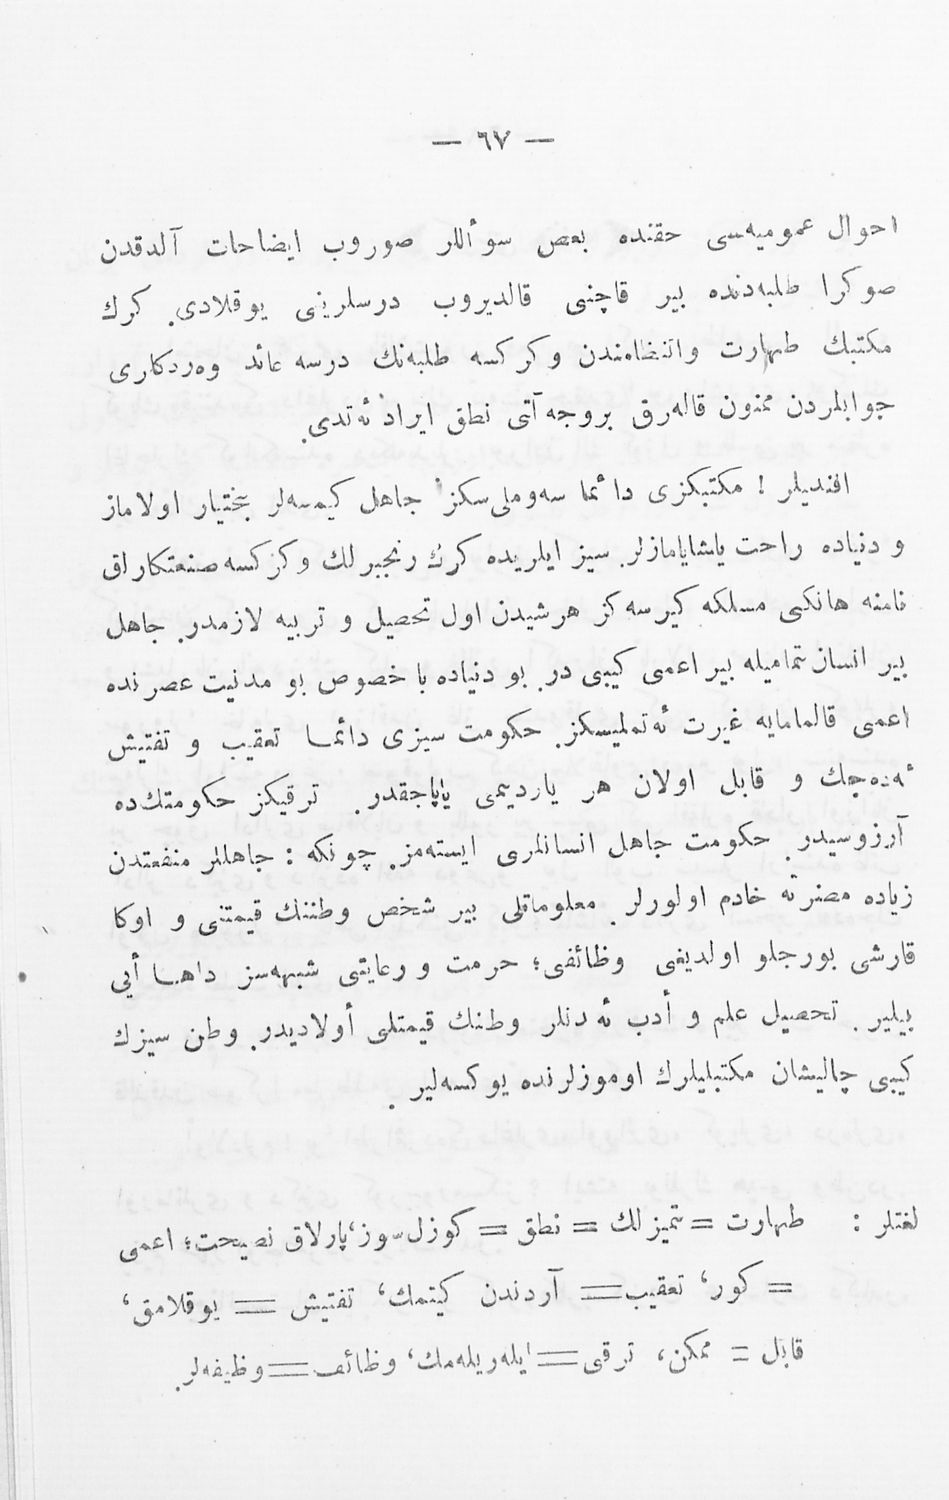 — ٦٧ —
احوال عموميه‌سى حقنده بعض سوأللر صوروب ايضاحات آلدقدن
صوكرا طلبه‌دنده بير قاچنى قالديروب درسلرينى يوقلادى. كرك
مكتبك طهارت وانتظامندن وكركسه طلبه‌نك درسه عائد وه‌ردكلرى
جوابلردن ممنون قاله‌رق بروجه آتى نطق ايراد ئه‌تدى.
افنديلر ! مكتبكزى دائما سه‌وملى‌سكز، جاهل كيمسه‌لر بختيار اولاماز
و دنياده راحت ياشايامازلر. سيز ايلريده كرك رنجبرلك وكركسه صنعتكارلق
نامنه هانكى مسلكه كيرسه‌كز هرشيدن اول تحصيل و تربيه لازمدر. جاهل
بير انسان تماميله بير اعمى كيبى در. بو دنياده باخصوص بو مدنيت عصرنده
اعمى قالمامايه غيرت ئه‌تمليسكز. حكومت سيزى دائما تعقيب و تفتيش
ئه‌ده‌جك و قابل اولان هر يارديمى ياپاجقدر. ترقيكز حكومتك‌ده
آرزوسيدر. حكومت جاهل انسانلرى ايسته‌مز. چونكه : جاهللر منفعتدن
زياده مضرته خادم اولورلر. معلوماتلى بير شخص وطننك قيمتنى و اوكا
قارشى بورجلو اولديغى وظائفى؛ حرمت و رعايتى شبهه‌سز داها أيى
بيلير. تحصيل علم و أدب ئه‌دنلر وطنك قيمتلى أولاديدر. وطن سيزك
كيبى چاليشان مكتبليلرك اوموزلرنده يوكسه‌لير.
لغتلر : طهارت = تميزلك = نطق = كوزل سوز، پارلاق نصيحت؛ اعمى
= كور، تعقيب = آردندن كيتمك، تفتيش = يوقلامق،
قابل = ممكن، ترقى = ايله‌ريله‌مك، وظائف = وظيفه‌لر.